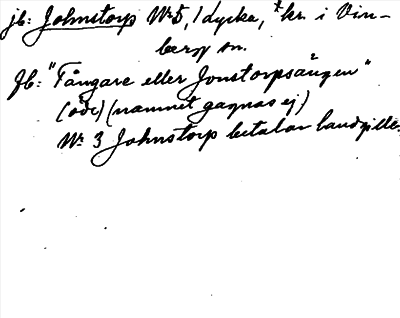 jb: Johnstorp Nr 5, 1 dycka, kr. i Vin-
berg sn.
Jb: "Tångare eller Jonstorpsängen"
(öde) (namnet gagnas ej)
Nr 3 Johnstorp betalar landgille.